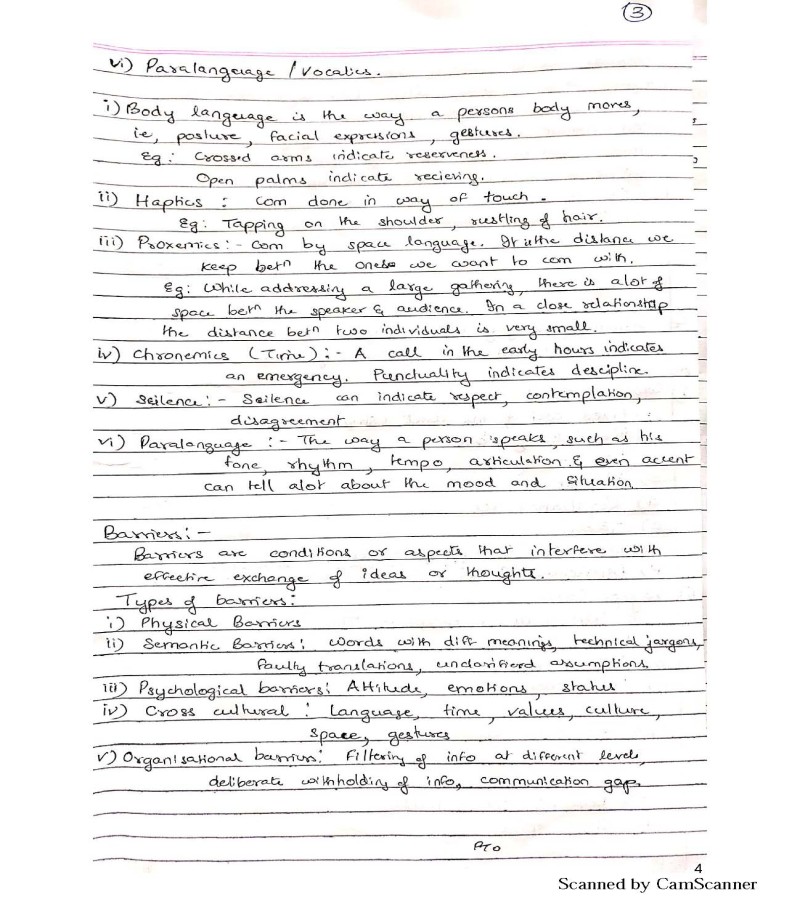 3
vi) Paralanguage / Vocalics.
i) Body language is the way a persons body moves,
ie, posture, facial expressions, gestures.
Eg: Crossed arms indicate reserveness.
Open palms indicate recieving.
ii) Haptics : Com done in way of touch.
Eg: Tapping on the shoulder, rustling of hair.
iii) Proxemics :- Com by space language. It is the distance we
keep betn the ones we want to com with.
Eg: While addressing a large gathering, there is alot of
space betn the speaker & audience. In a close relationship
the distance betn two individuals is very small.
iv) Chronemics (Time) :- A call in the early hours indicates
an emergency. Punctuality indicates descipline.
v) Seilence :- Seilence can indicate respect, contemplation,
disagreement
vi) Paralanguage :- The way a person speaks, such as his
tone, rhythm, tempo, articulation & even accent
can tell alot about the mood and situation
Barriers :-
Barriers are conditions or aspects that interfere with
effective exchange of ideas or thoughts.
Types of barriers:
i) Physical Barriers
ii) Semantic Barriers: Words with diff meanings, technical jargons,
faulty translations, unclarified assumptions.
iii) Psychological barriers: Attitude, emotions, status
iv) Cross cultural : Language, time, values, culture,
space, gestures
v) Organisational barriers: Filtering of info at different level,
deliberate withholding of info, communication gap.
PTO
4
Scanned by CamScanner